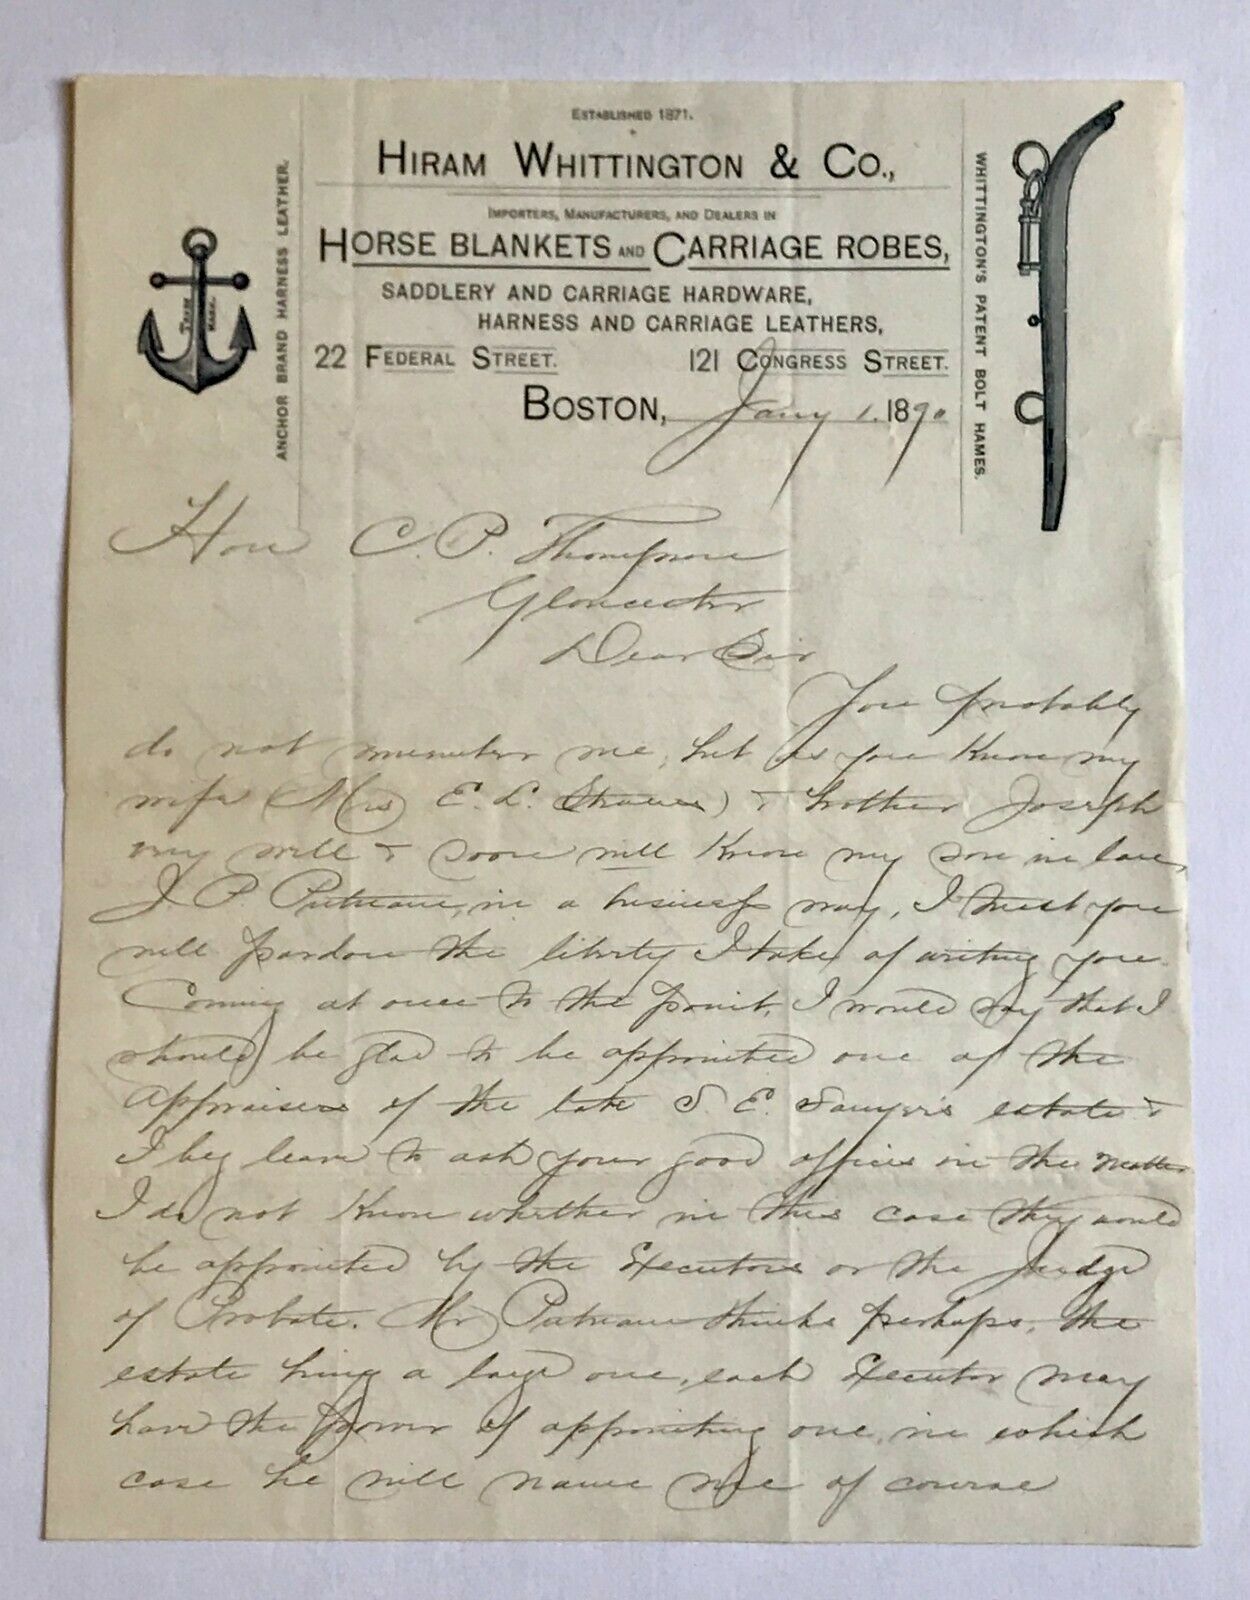 ESTABLISHED 1871.
HIRAM WHITTINGTON & CO.,
IMPORTERS, MANUFACTURERS, AND DEALERS IN
HORSE BLANKETS AND CARRIAGE ROBES,
SADDLERY AND CARRIAGE HARDWARE,
HARNESS AND CARRIAGE LEATHERS,
22 FEDERAL STREET. 121 CONGRESS STREET.
BOSTON, Jany 1. 1890
TRADE MARK.
ANCHOR BRAND HARNESS LEATHER.
WHITTINGTON'S PATENT BOLT HAMES.
Hon C. P. Thompson
Gloucester
Dear Sir
You probably
do not remember me, but as you know my
wife (Mrs E. L. ) & brother Joseph
very well & soon will know my son in law,
J. P. Putnam, in a business way, I trust you
will pardon the liberty I take of writing you.
Coming at once to the point, I would say that I
should be glad to be appointed one of the
appraisers of the late S. E. Sawyer's estate &
I beg leave to ask your good offices in the matter
I do not know whether in this case they would
be appointed by the Executors or the Judge
of Probate. Mr Putnam thinks perhaps, the
estate being a large one, each Executor may
have the power of appointing one, in which
case he will name me of course